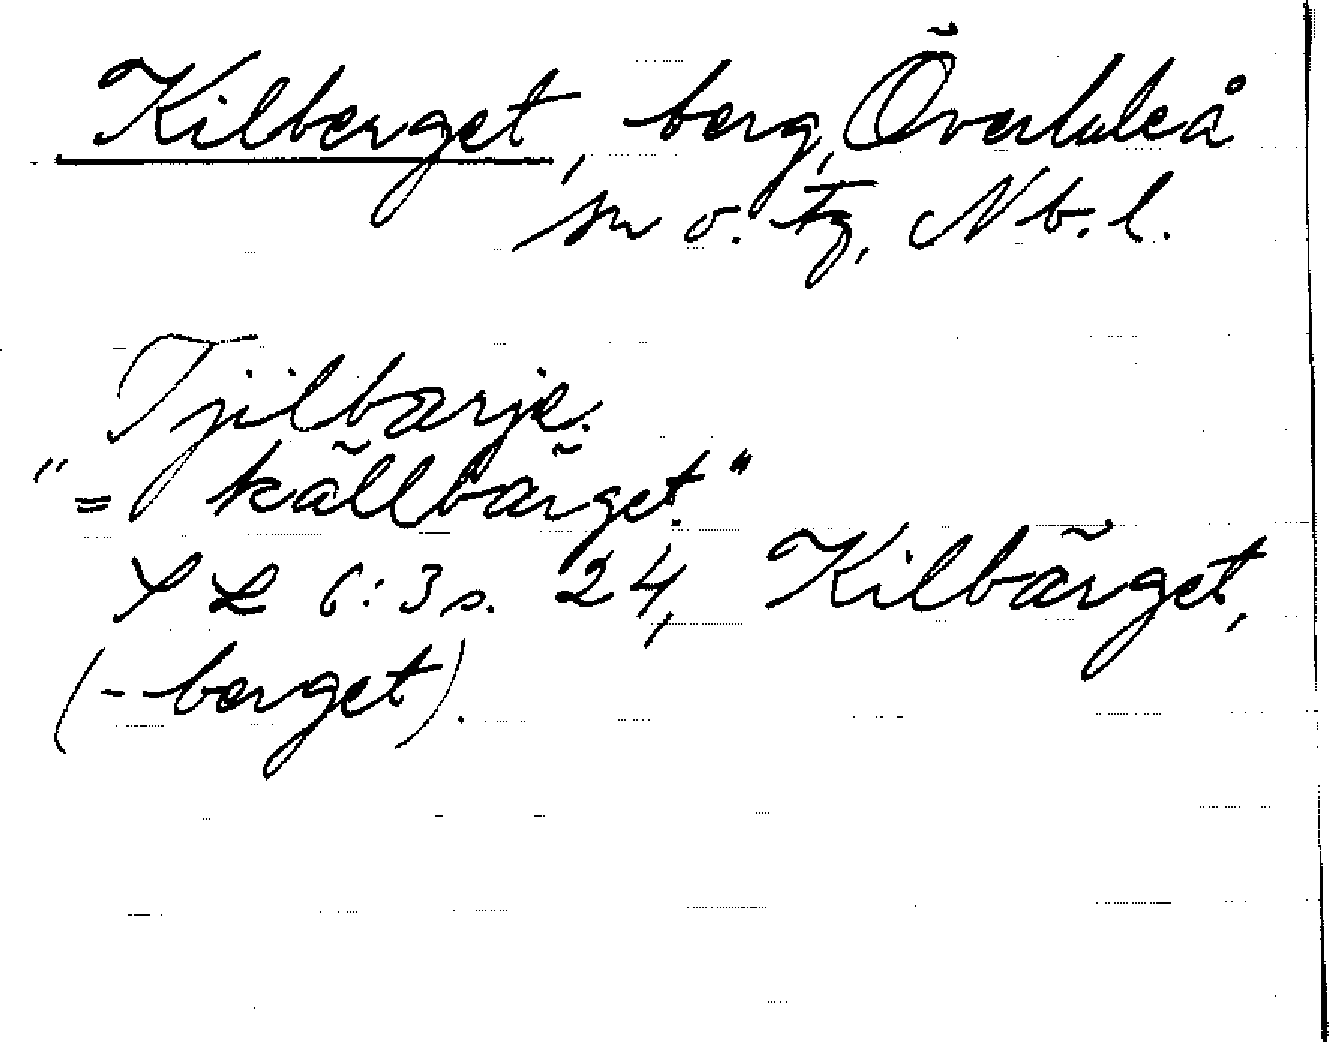 Kilberget, berg, Överluleå
sn o. tg, Nb. l.
Tjilbarje.
"= källbärget."
SL 6:3 s. 24, Kilbärget,
(-berget).